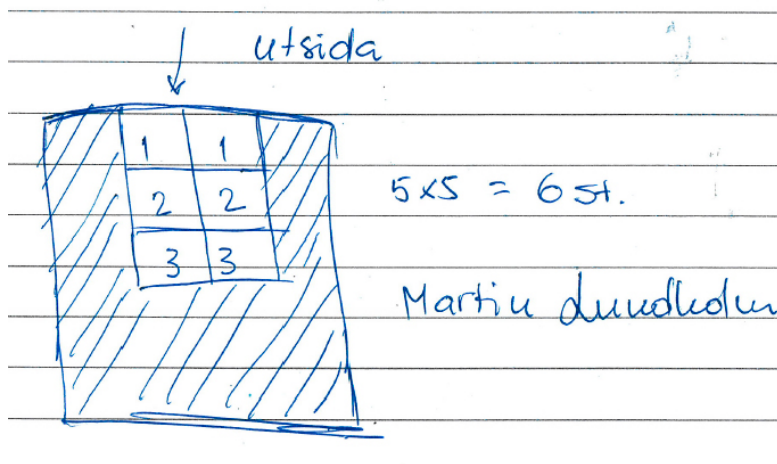 utsida
1 1
2 2
5x5 = 6 st.
3 3
Martin Lundholm